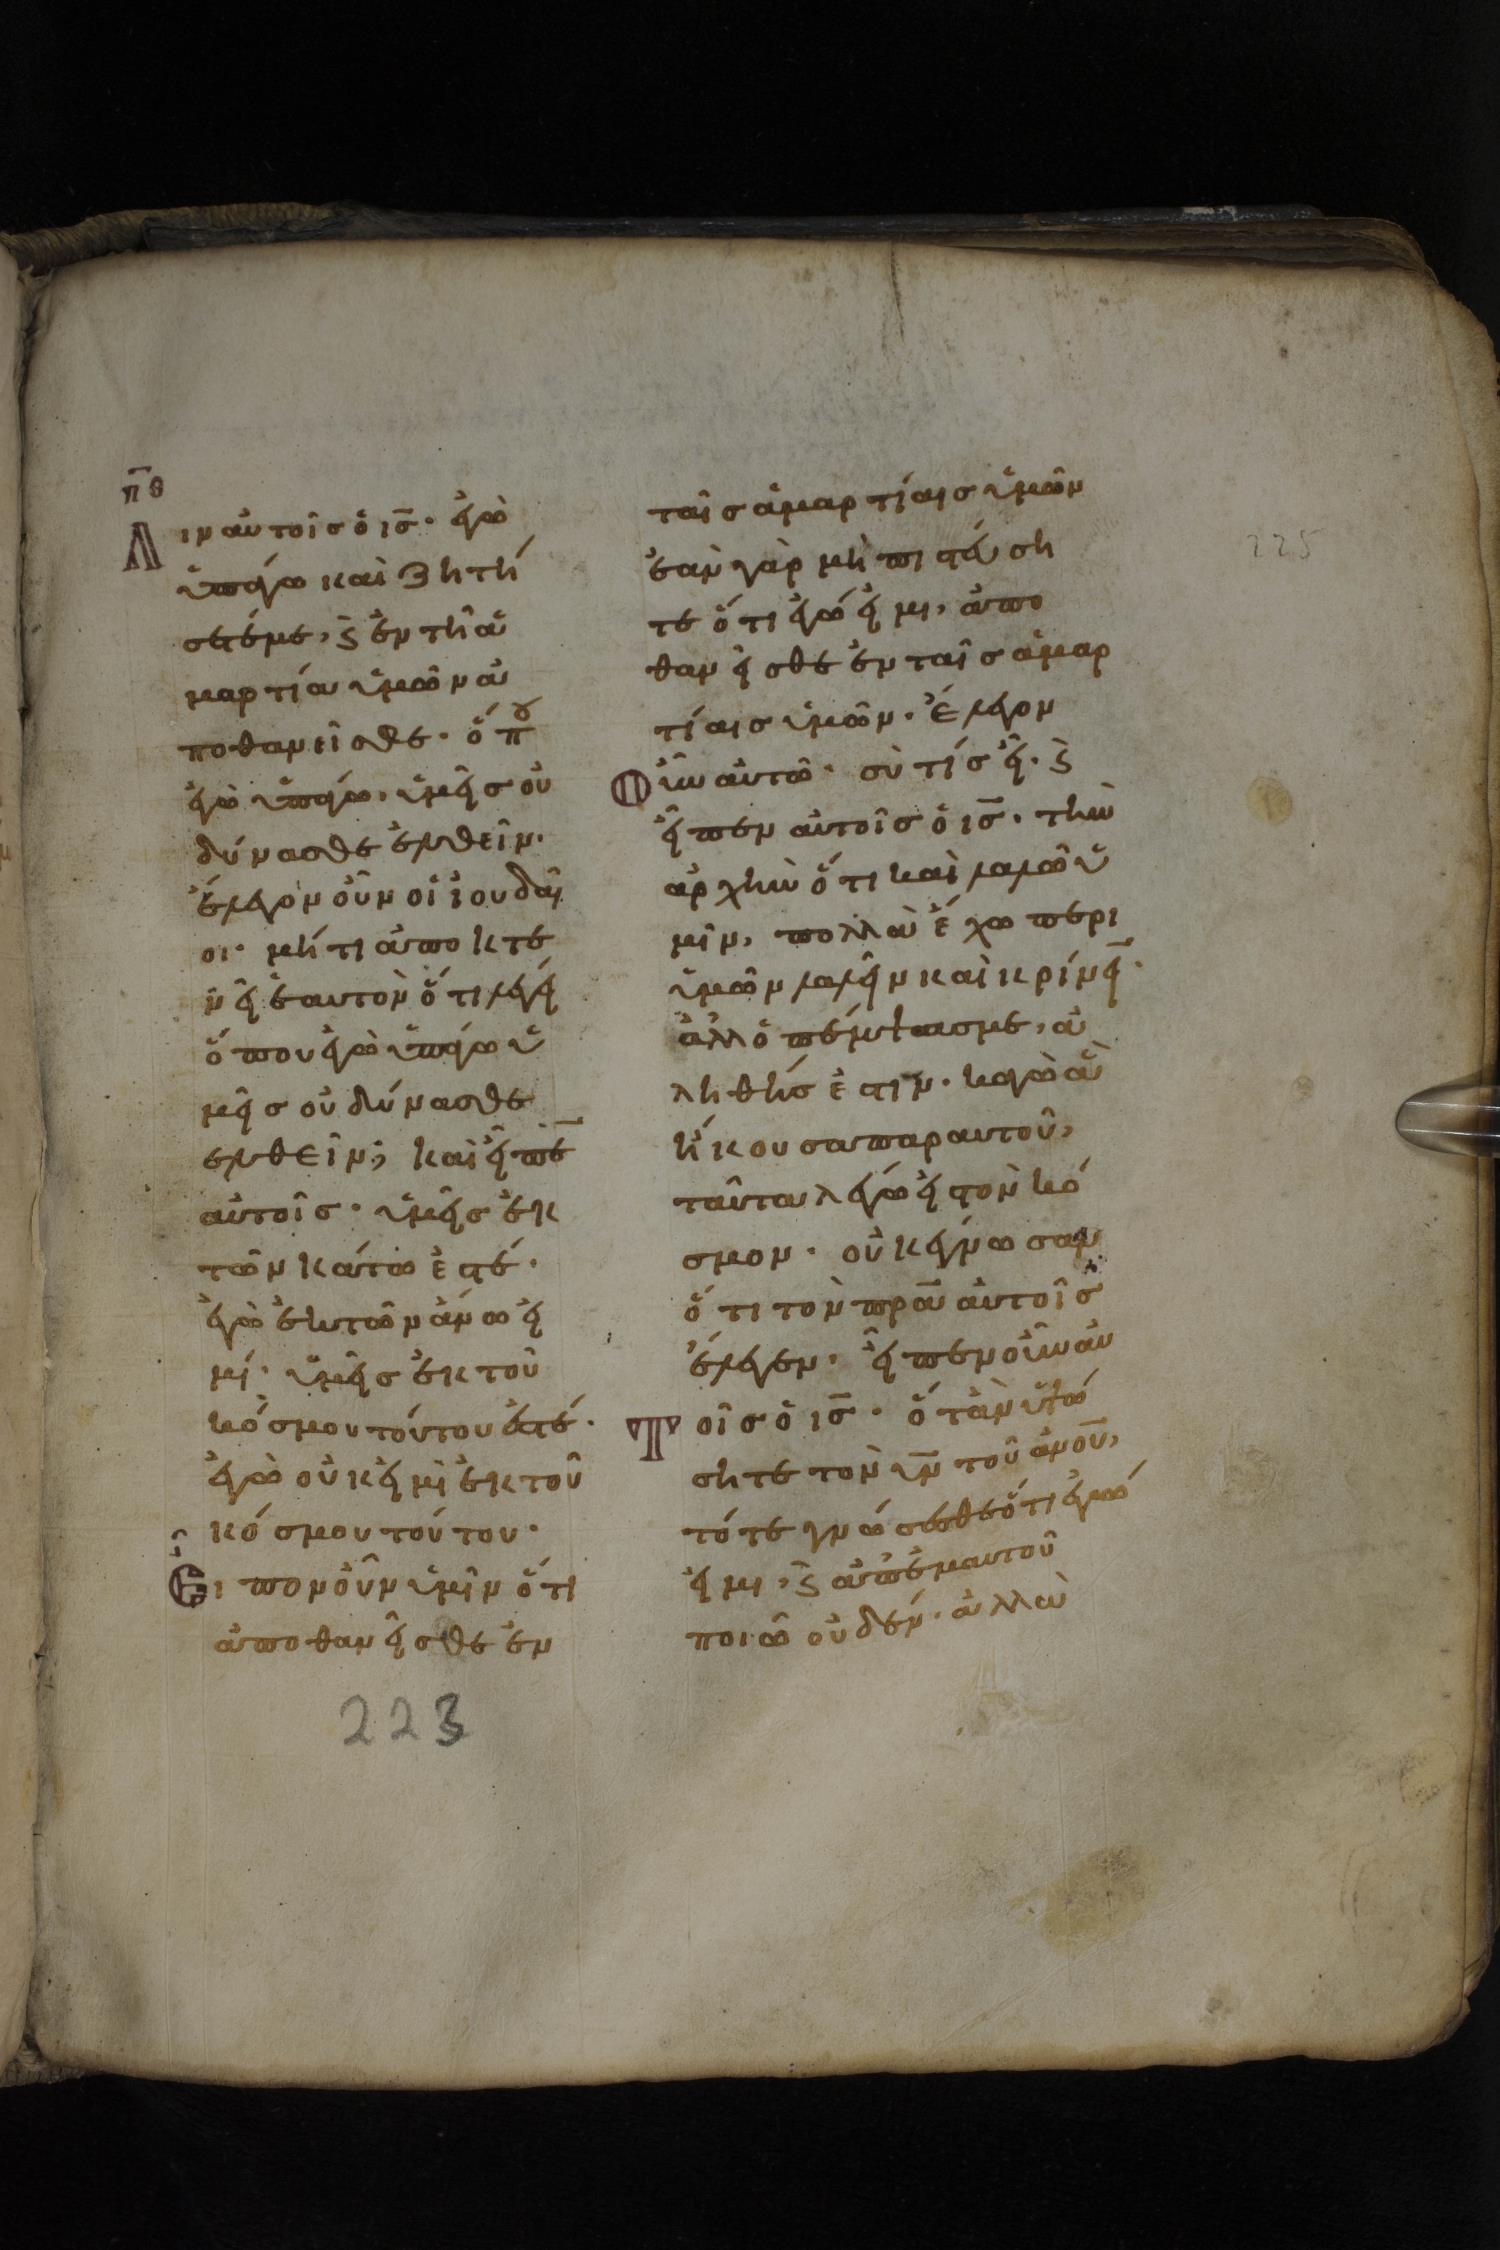 πθ
Λιν αὐτοῖσ ὁ ισ̅· ἐγὼ
ὑπάγω καὶ ζητή
σετέ με, ϗ ἐν τῆ ἁ
μαρτία ὑμῶν ἀ
ποθανεῖσθε· ὅπου
ἐγὼ ὑπάγω, ὑμεῖσ οὐ
δύνασθε ἐλθεῖν·
ἔλεγον οὖν οἱ ἰουδαῖ
οι· μήτι ἀποκτε
νεῖ ἑαυτὸν ὅτι λέγει
ὅπου ἐγὼ ὑπάγω ὑ
μεῖσ οὐ δύνασθε
ἐλθεῖν; καὶ εἶπε̅
αὐτοῖσ· ὑμεῖσ ἐκ
τῶν κάτω ἐστέ·
ἐγὼ ἐκ τῶν ἄνω εἰ
μί· ὑμεῖσ ἐκ τοῦ
κόσμου τούτου ἐστέ·
ἐγὼ οὐκ εἰμὶ ἐκ τοῦ
κόσμου τούτου·
Εἶπον οὖν ὑμῖν ὅτι
ἀποθανεῖσθε ἐν
ταῖσ ἁμαρτίαισ ὑμῶν
ἐὰν γὰρ μὴ πιστεύση
τε ὅτι ἐγώ εἰμι, ἀπο
θανεῖσθε ἐν ταῖσ ἁμαρ
τίαισ ὑμῶν· ἔλεγον
Οὖν αὐτῶ· σὺ τίσ εἶ· ϗ
εἶπεν αὐτοῖσ ὁ ισ̅· τὴν
ἀρχὴν ὅτι καὶ λαλῶ ὑ
μῖν, πολλὰ ἔχω περι
ὑμῶν λαλεῖν καὶ κρίνει̅·
ἀλλ ὁ πέμψασ με, ἀ
ληθήσ ἐστιν· κἀγὼ ἃ
ἤκουσα παρ αυτοῦ,
ταῦτα λέγω εἰσ τὸν κό
σμον· οὐκ ἔγνωσαν
ὅτι τὸν πρ̅α αὐτοῖσ
ἔλεγεν· εἶπεν οὖν αὐ
Τοῖσ ὁ ισ̅· ὅταν ὑψώ
σητε τὸν υν̅ τοῦ ανου̅,
τότε γνώσεσθε ὅτι ἐγώ
εἰμι, ϗ ἀπ ἐμαυτοῦ
ποιῶ οὐδέν· ἀλλὰ
225
223